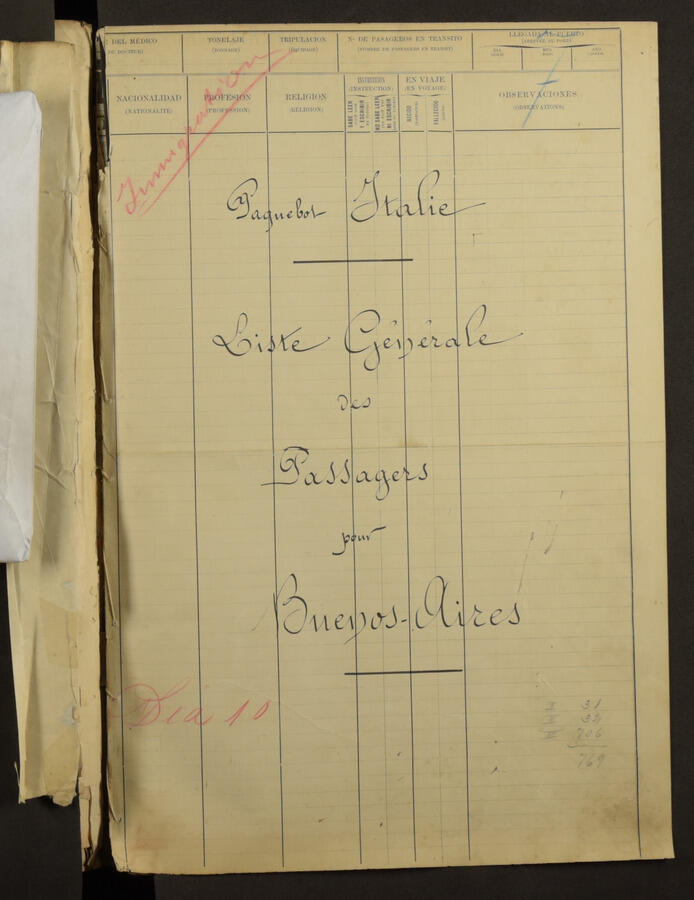 DEL MÉDICO
DU DOCTEUR)
TONELAJE
(TONNAGE)
TRIPULACION
(ÉQUIPAGE)
Nº DE PASAGEROS EN TRANSITO
(NOMBRE DE PASSAGERS EN TRANSIT)
LLEGADA AL PUERTO
(ARRIVÉE DU PORT)
DIA
MES
AÑO
NACIONALIDAD
(NATIONALITÉ)
PROFESION
(PROFESSION)
RELIGION
(RELIGION)
INSTRUCCION
(INSTRUCTION)
SABE LEER
Y ESCRIBIR
NO SABE LEER
NI ESCRIBIR
EN VIAJE
(EN VOYAGE)
NACIDO
FALLECIDO
OBSERVACIONES
(OBSERVATIONS)
Inmigracion
Paquebot Italie
Liste Générale
des
Passagers
pour
Buenos-Aires
Dia 10
I 31
II 32
III 706
769